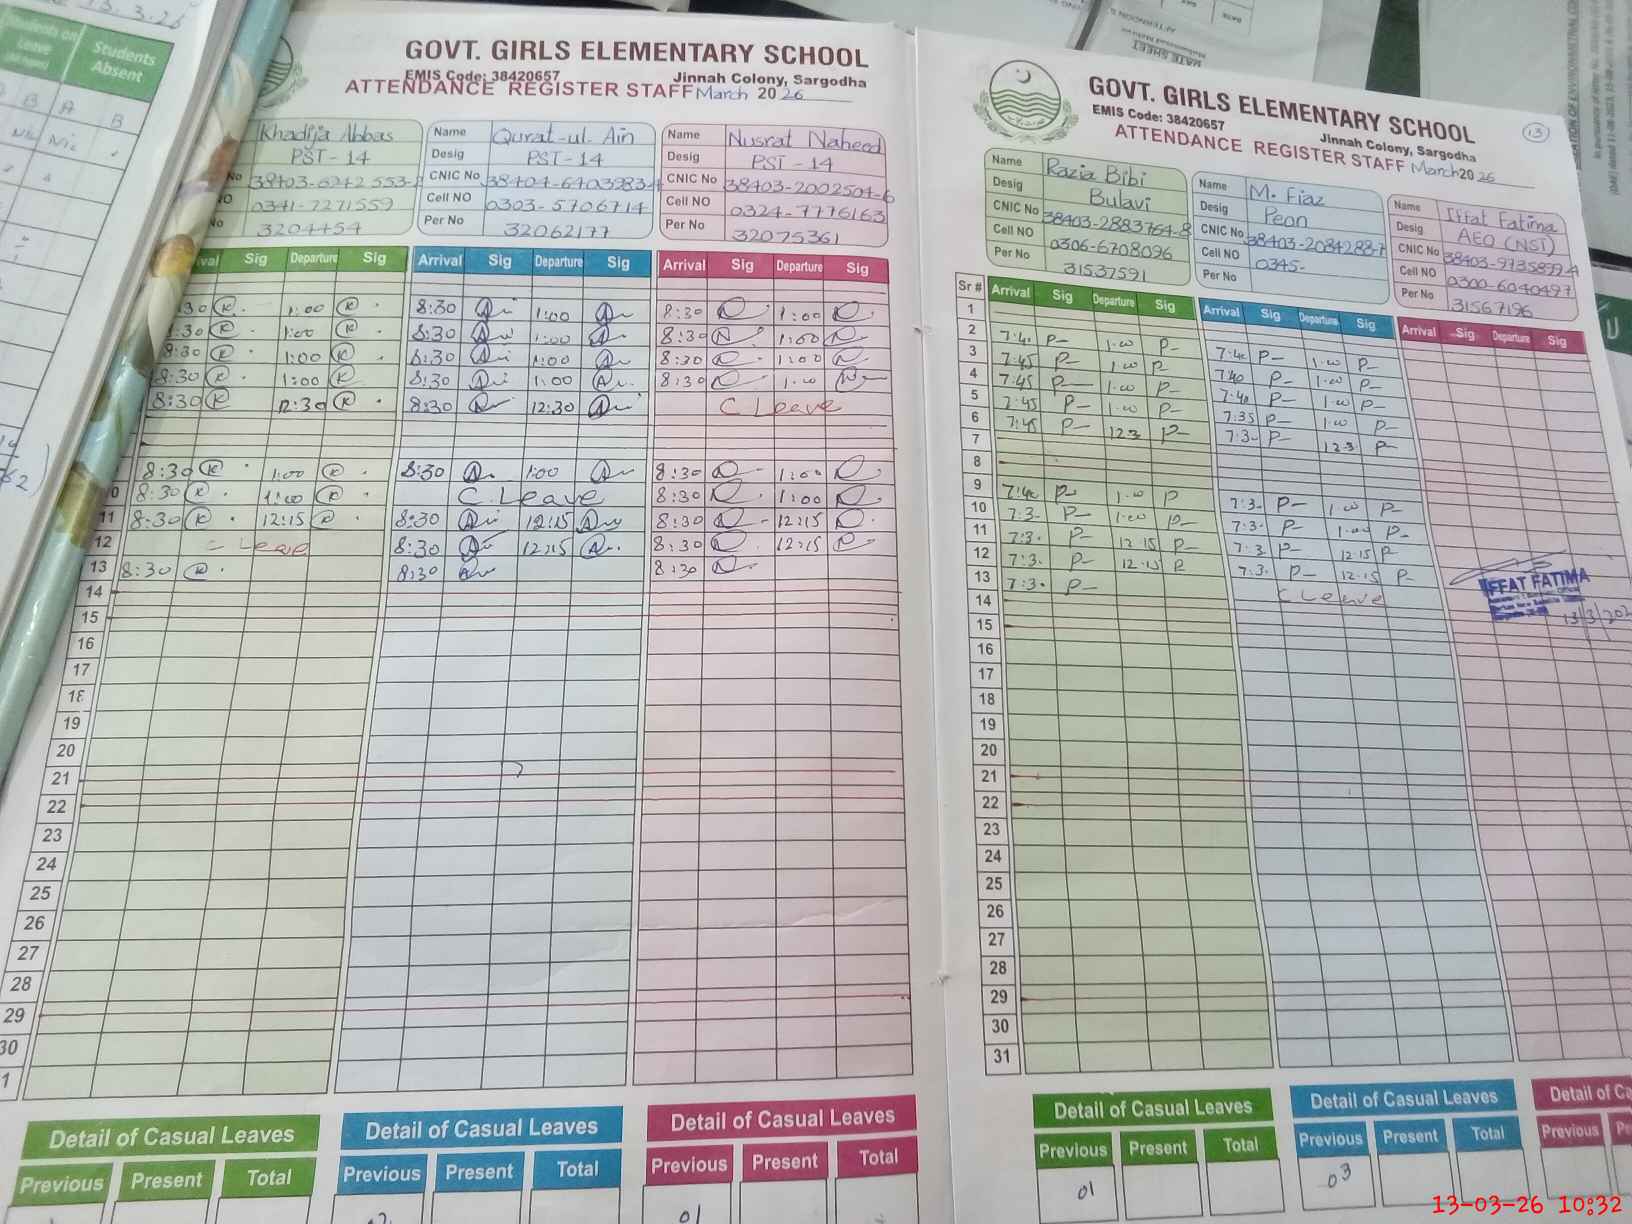 13.3.26
Students on
Leave
Students
Absent
B A B
Nil Nil
GOVT. GIRLS ELEMENTARY SCHOOL
EMIS Code: 38420657 Jinnah Colony, Sargodha
ATTENDANCE REGISTER STAFF March 2026
Khadija Abbas
PST-14
No
0341-7271559
No 3204454
Name Qurat-ul-Ain
Desig PST-14
CNIC No 38404-6403983-4
Cell NO 0303-5706714
Per No 32062177
Name Nusrat Naheed
Desig PST-14
CNIC No 38403-2002504-6
Cell NO 0324-7776163
Per No 32075361
Sig Departure Sig Arrival Sig Departure Sig Arrival Sig Departure Sig
1:00 8:30 1:00 8:30 1:00
1:00 8:30 1:00 8:30 1:00
8:30 1:00 8:30 1:00 8:30 1:00
8:30 1:00 8:30 1:00 8:30 1.00
8:30 12:30 8:30 12:30 C Leave
8:30 1:00 8:30 1:00 8:30 1:00
8:30 1:00 C. Leave 8:30 1:00
11 8:30 12:15 8:30 12:15 8:30 12:15
12 C Leave 8:30 12:15 8:30 12:15
13 8:30 8:30 8:30
14
15
16
17
18
19
20
21
22
23
24
25
26
27
28
29
30
Detail of Casual Leaves Detail of Casual Leaves Detail of Casual Leaves
Previous Present Total Previous Present Total Previous Present Total
01
GOVT. GIRLS ELEMENTARY SCHOOL
13
EMIS Code: 38420657 Jinnah Colony, Sargodha
ATTENDANCE REGISTER STAFF March 2026
Name Razia Bibi
Desig Bulavi
CNIC No 38403-2883764-8
Cell NO 0306-6708096
Per No 31537591
Name M. Fiaz
Desig Peon
CNIC No 38403-2084288-7
Cell NO 0345-
Per No
Name Iffat Fatima
Desig AEO (NST)
CNIC No 38403-9735899-4
Cell NO 0300-6040497
Per No 31567196
Sr # Arrival Sig Departure Sig Arrival Sig Departure Sig Arrival Sig Departure Sig
1
2 7:4. P 1.00 P 7:40 P 1.00 P
3 7:45 P 1.00 P 7:40 P 1.00 P
4 7:45 P 1.00 P 7:40 P 1.00 P
5 7:45 P 1.00 P 7:35 P 1.00 P
6 7:45 P 12.3 P 7:3. P 12.3 P
7
8
9 7:40 P 1.00 P 7:3. P 1.00 P
10 7:3. P 1.00 P 7:3. P 1.00 P
11 7:3. P 12.15 P 7:3. P 12.15 P
12 7:3. P 12.15 P 7:3. P 12.15 P
13 7:3. P C Leave
14
15
16
17
18
19
20
21
22
23
24
25
26
27
28
29
30
31
IFFAT FATIMA
13/3/202
Detail of Casual Leaves Detail of Casual Leaves Detail of Ca
Previous Present Total Previous Present Total Previous
01 03
13-03-26 10:32